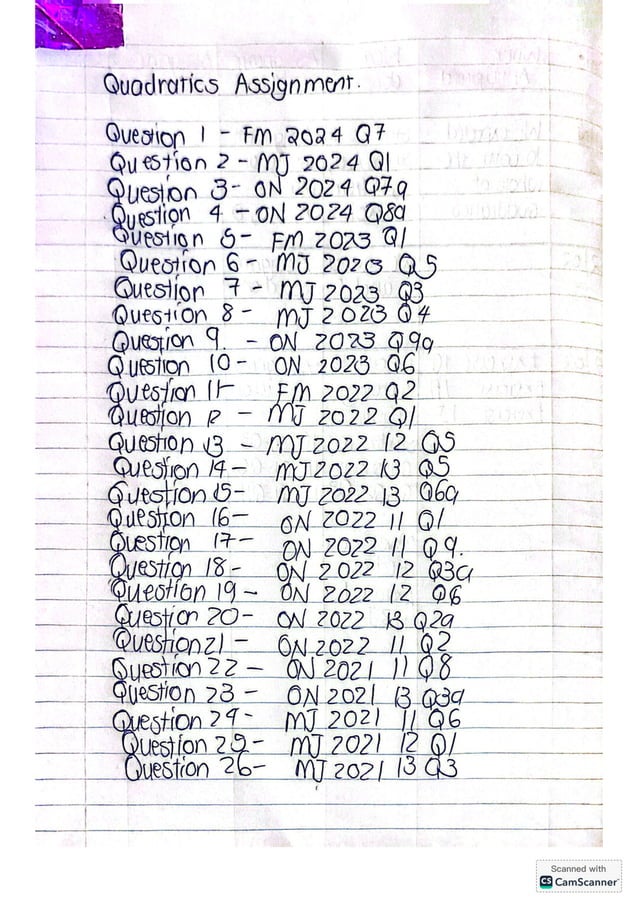 Quadratics Assignment.
Question 1 - FM 2024 Q7
Question 2 - MJ 2024 Q1
Question 3 - ON 2024 Q7a
Question 4 - ON 2024 Q8a
Question 5 - FM 2023 Q1
Question 6 - MJ 2023 Q5
Question 7 - MJ 2023 Q3
Question 8 - MJ 2023 Q4
Question 9. - ON 2023 Q9a
Question 10 - ON 2023 Q6
Question 11- FM 2022 Q2
Question 12 - MJ 2022 Q1
Question 13 - MJ 2022 12 Q5
Question 14 - MJ 2022 13 Q5
Question 15- MJ 2022 13 Q6a
Question 16- ON 2022 11 Q1
Question 17- ON 2022 11 Q9.
Question 18- ON 2022 12 Q3a
Question 19- ON 2022 12 Q6
Question 20- ON 2022 13 Q2a
Question 21- ON 2022 11 Q2
Question 22 - ON 2021 11 Q8
Question 23 - ON 2021 13 Q3a
Question 24- MJ 2021 11 Q6
Question 25- MJ 2021 12 Q1
Question 26- MJ 2021 13 Q3
Scanned with
CS CamScanner